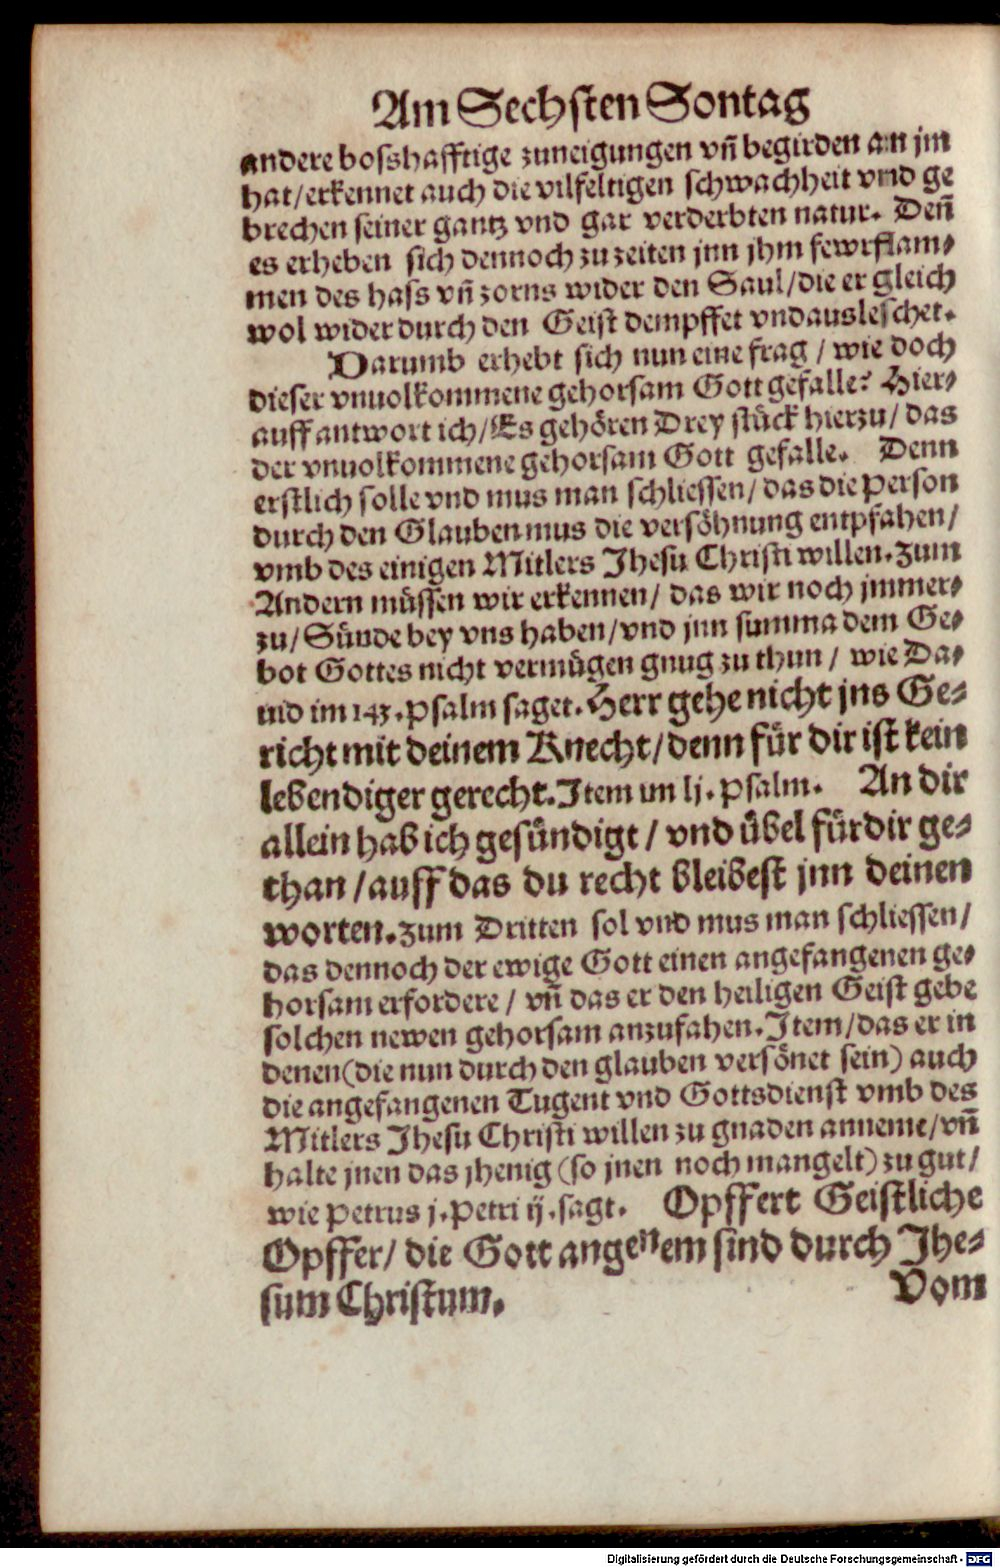 Am Sechsten Sontag
andere bosshafftige zuneigungen vn̄ begirden an jm
hat/erkennet auch die vilfeltigen schwachheit vnd ge
brechen seiner gantz vnd gar verderbten natur. Den̄
es erheben sich dennoch zu zeiten jnn jhm fewrflam⸗
men des hass vn̄ zorns wider den Saul/die er gleich
wol wider durch den Geist dempffet vnd ausleschet.
Darumb erhebt sich nun eine frag / wie doch
dieser vnuolkommene gehorsam Gott gefalle? Hier⸗
auff antwort ich/Es gehören Drey stück hierzu/ das
der vnuolkommene gehorsam Gott gefalle. Denn
erstlich solle vnd mus man schliessen/ das die person
durch den Glauben mus die versöhnung entpfahen/
vmb des einigen Mitlers Jhesu Christi willen. zum
Andern müssen wir erkennen/ das wir noch jmmer⸗
zu/ Sünde bey vns haben/vnd jnn summa dem Ge⸗
bot Gottes nicht vermügen gnug zu thun / wie Da⸗
uid im 143. psalm saget. Herr gehe nicht jns Ge⸗
richt mit deinem Knecht/denn für dir ist kein
lebendiger gerecht. Item im lj. psalm. An dir
allein hab ich gesündigt / vnd übel für dir ge⸗
than /auff das du recht bleibest jnn deinen
worten. zum Dritten sol vnd mus man schliessen/
das dennoch der ewige Gott einen angefangenen ge⸗
horsam erfordere / vn̄ das er den heiligen Geist gebe
solchen newen gehorsam anzufahen. Item/das er in
denen (die nun durch den glauben versönet sein) auch
die angefangenen Tugent vnd Gottsdienst vmb des
Mitlers Jhesu Christi willen zu gnaden anneme/vn̄
halte jnen das jhenig (so jnen noch mangelt) zu gut/
wie petrus j. petri ij. sagt. Opffert Geistliche
Opffer/ die Gott angenem sind durch Jhe⸗
sum Christum.
Vom
Digitalisierung gefördert durch die Deutsche Forschungsgemeinschaft - DFG